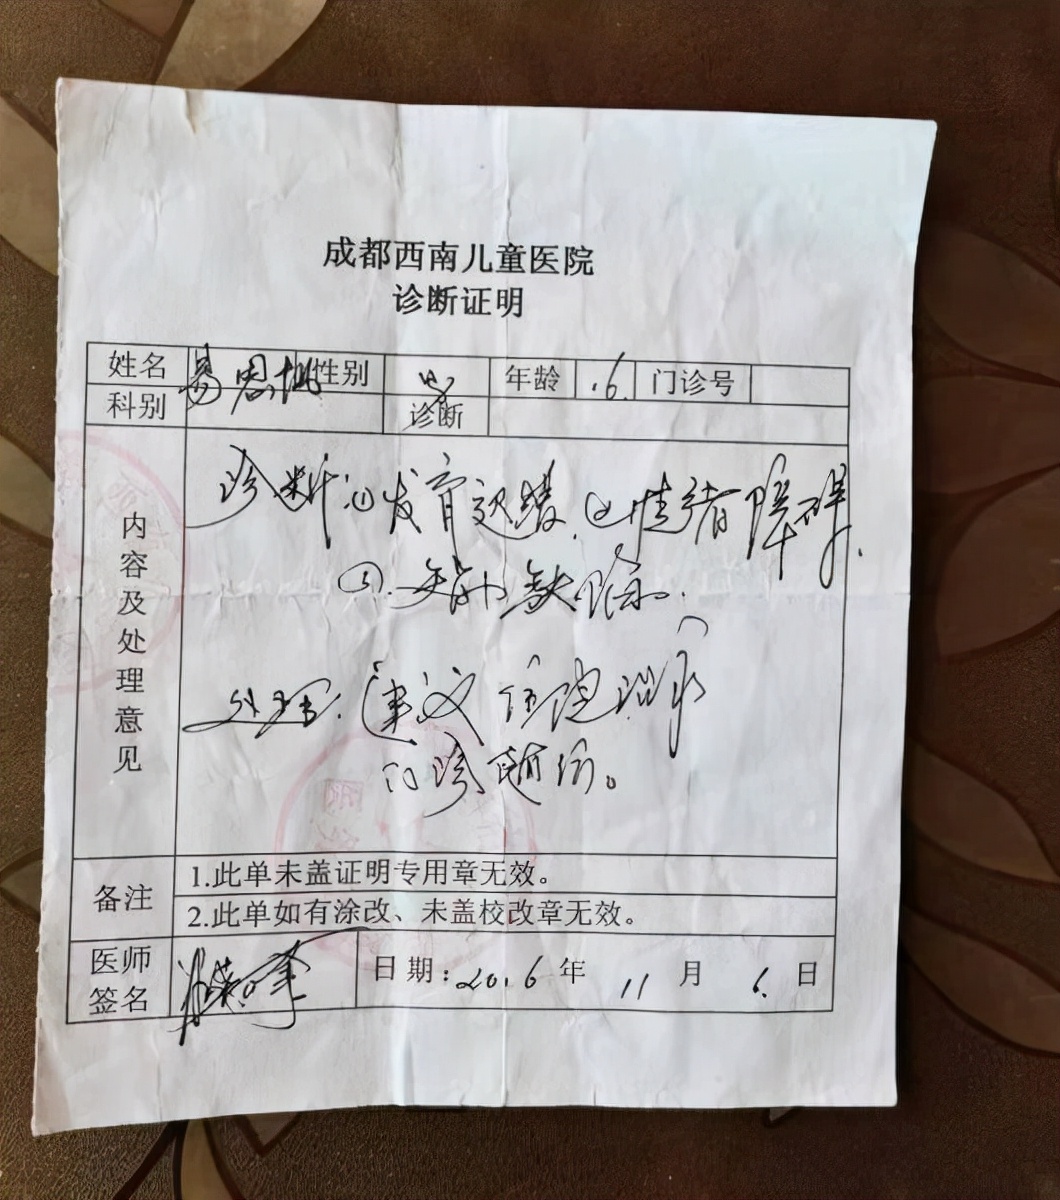 成都西南儿童医院
诊断证明
姓名 易思 性别 男 年龄 6 门诊号
科别 诊断
内容及处理意见
诊断:① 发育迟缓. ② 情绪障碍.
③. 缺陷.
处理:建议住院
备注
1.此单未盖证明专用章无效。
2.此单如有涂改、未盖校改章无效。
医师签名 日期:2016年 11月 6日